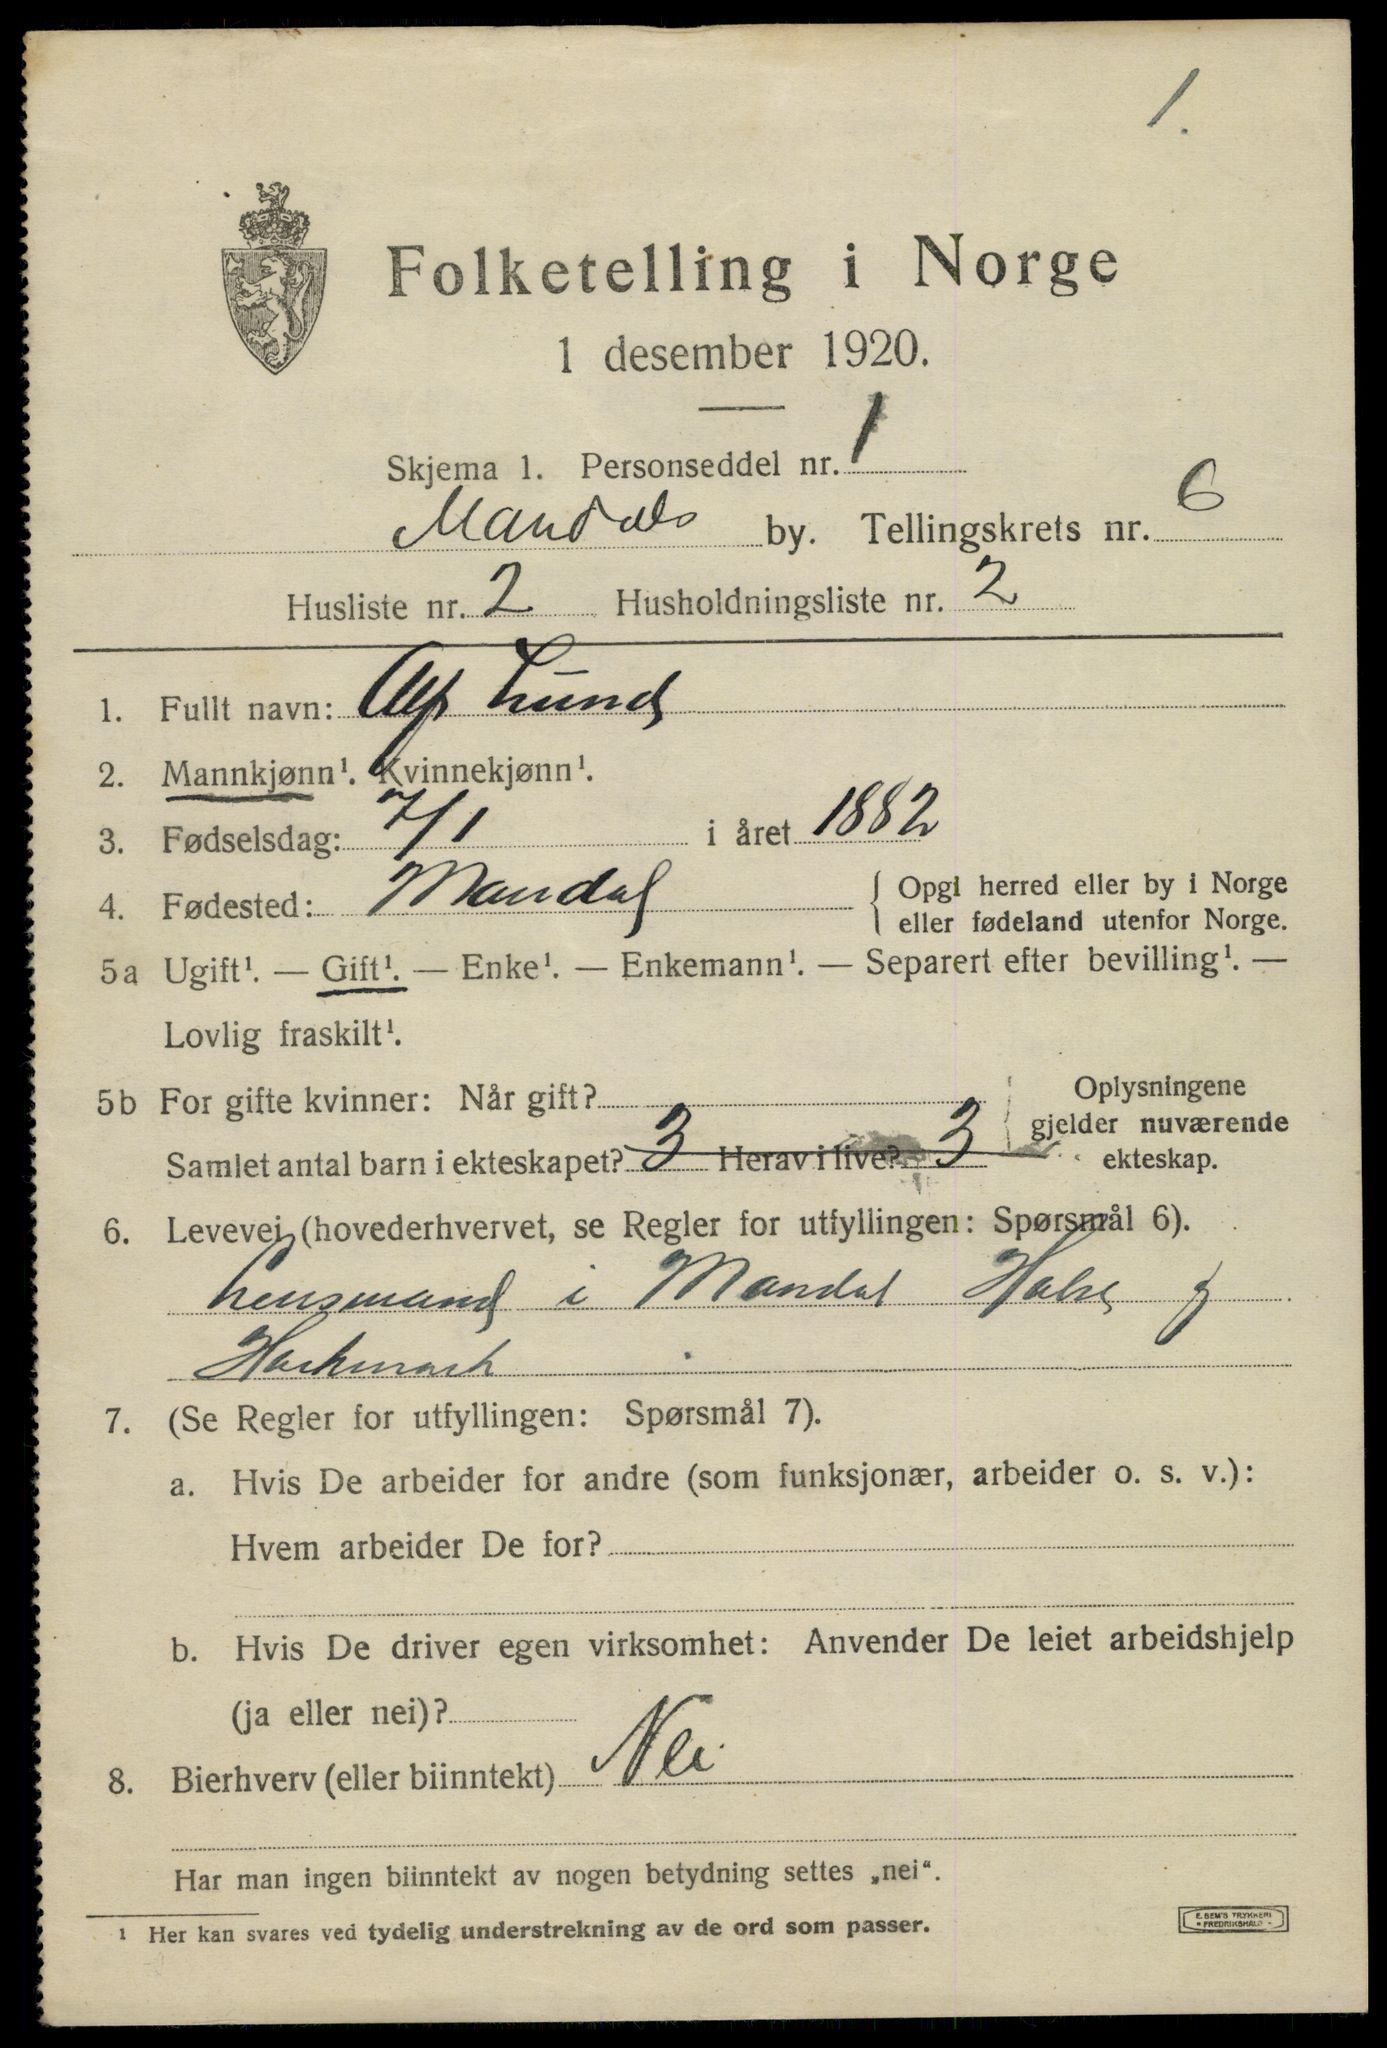 1.
Folketelling i Norge
1 desember 1920.
Skjema 1. Personseddel nr. 1
Mandals by. Tellingskrets nr. 6
Husliste nr. 2 Husholdningsliste nr. 2
1. Fullt navn: Alf Lund
2. Mannkjønn¹. Kvinnekjønn¹.
3. Fødselsdag: 7/1 i året 1882
4. Fødested: Mandal { Opgi herred eller by i Norge
eller fødeland utenfor Norge.
5a Ugift¹. — Gift¹. — Enke¹. — Enkemann¹. — Separert efter bevilling¹. —
Lovlig fraskilt¹.
5b For gifte kvinner: Når gift? Oplysningene
gjelder nuværende
Samlet antal barn i ekteskapet? 3 Herav i live? 3 ekteskap.
6. Levevei (hovederhvervet, se Regler for utfyllingen: Spørsmål 6).
Lensmand i Mandal Halse og
Harkmark
7. (Se Regler for utfyllingen: Spørsmål 7).
a. Hvis De arbeider for andre (som funksjonær, arbeider o. s. v.):
Hvem arbeider De for?
b. Hvis De driver egen virksomhet: Anvender De leiet arbeidshjelp
(ja eller nei)?
8. Bierhverv (eller biinntekt) Nei
Har man ingen biinntekt av nogen betydning settes „nei“.
¹ Her kan svares ved tydelig understrekning av de ord som passer.
E. SEM'S TRYKKERI
• FREDRIKSHALD •